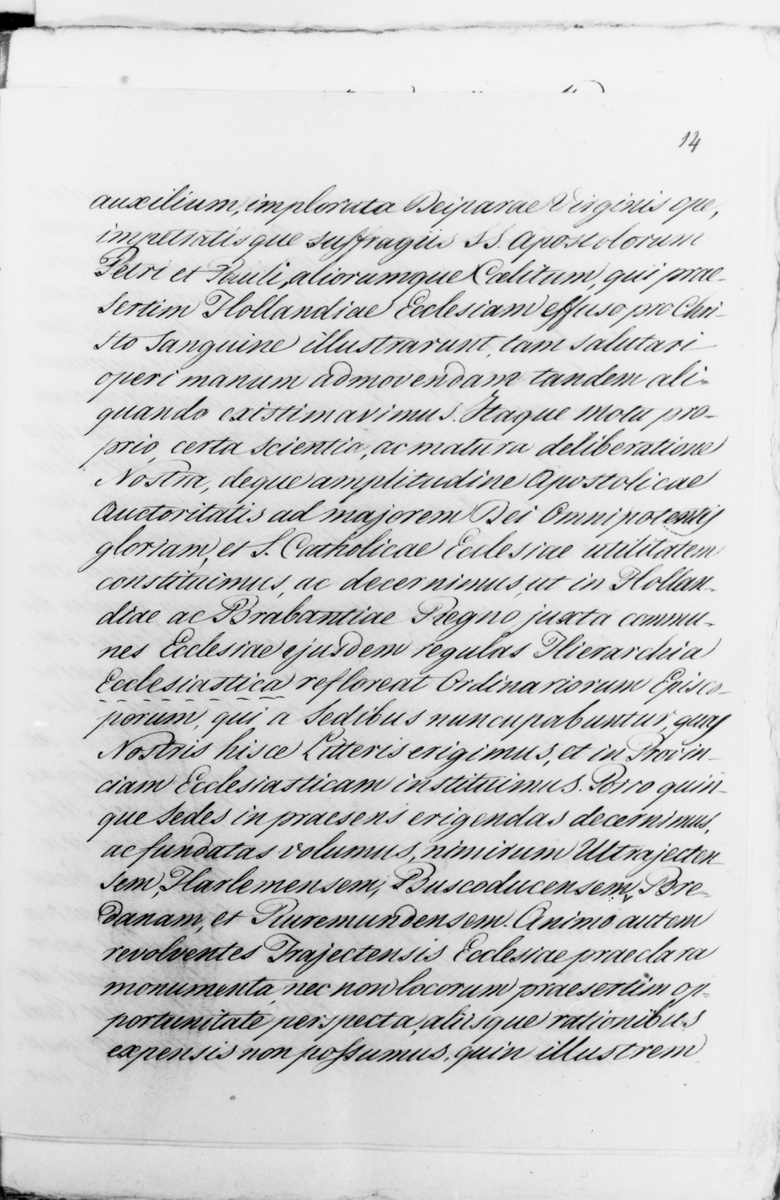 14
auxilium, implorata Deiparae Virginis ope,
impetratisque suffragiis SS. Apostolorum
Petri et Pauli, aliorumque Coelitum, qui prae-
sertim Hollandiae Ecclesiam effuso pro Chri-
sto Sanguine illustrarunt, tam salutari
operi manum admovendam tandem ali-
quando existimavimus. Itaque motu pro-
prio, certa scientia, ac matura deliberatione
Nostra, deque amplitudine Apostolicae
Auctoritatis ad majorem Dei Omnipotentis
gloriam, et S. Catholicae Ecclesiae utilitatem
constituimus, ac decernimus, ut in Hollan-
diae ac Brabantiae Regno juxta commu-
nes Ecclesiae ejusdem regulas Hierarchia
Ecclesiastica refloreat Ordinariorum Episco-
porum, qui a Sedibus nuncupabuntur, quas
Nostris hisce Litteris erigimus, et in Provin-
ciam Ecclesiasticam instituimus. Porro quin-
que Sedes in praesens erigendas decernimus,
ac fundatas volumus, nimirum Ultrajecten
sem, Harlemensem, Buscoducensem, Bre-
danam, et Ruremundensem. Animo autem
revolventes Trajectensis Ecclesiae praeclara
monumenta, nec non locorum praesertim op-
portunitate perspecta, aliisque rationibus
expensis non possumus, quin illustrem